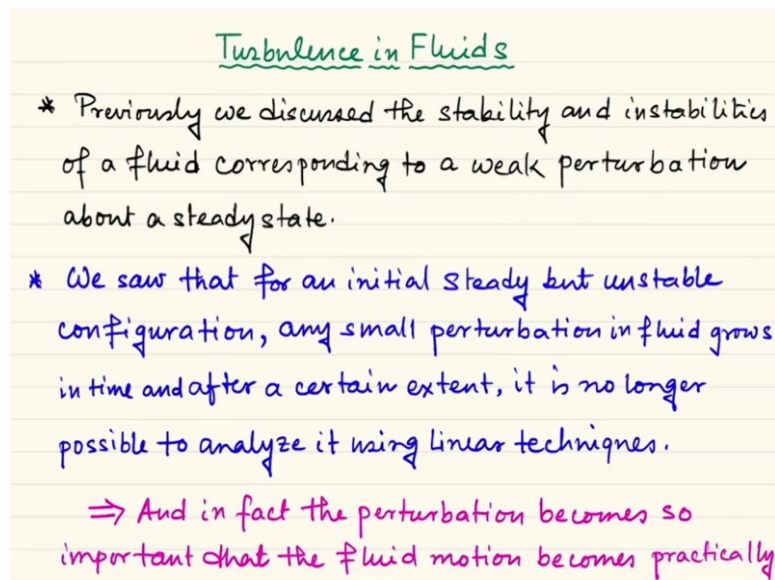 Turbulence in Fluids
* Previously we discussed the stability and instabilities
of a fluid corresponding to a weak perturbation
about a steady state.
* We saw that for an initial steady but unstable
configuration, any small perturbation in fluid grows
in time and after a certain extent, it is no longer
possible to analyze it using linear techniques.
⇒ And in fact the perturbation becomes so
important that the fluid motion becomes practically